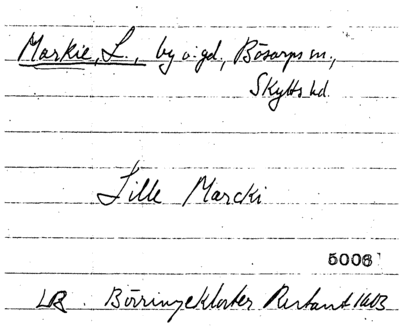 Markie, L., by o. gd., Bösarps sn.,
Skytts hd.
Lille Marcki
5006
LR. Börringekloster Restant 1603